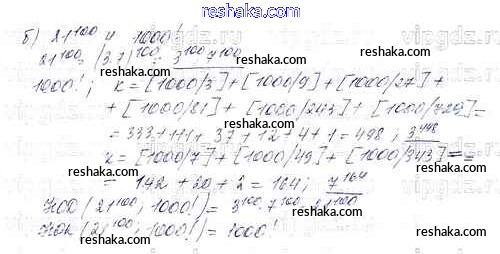 reshaka.ru
б) 21^100 и 1000!
21^100 = (3·7)^100 = 3^100 7^100
reshaka.ru
1000!; k = [1000/3] + [1000/9] + [1000/27] +
+ [1000/81] + [1000/243] + [1000/729] =
reshaka.ru
= 333 + 111 + 37 + 12 + 4 + 1 = 498; 3^498
k = [1000/7] + [1000/49] + [1000/343] =
reshaka.ru
= 142 + 20 + 2 = 164; 7^164
НОД (21^100; 1000!) = 3^100 · 7^100 = 21^100
reshaka.ru
НОК (21^100; 1000!) = 1000!
reshaka.ru